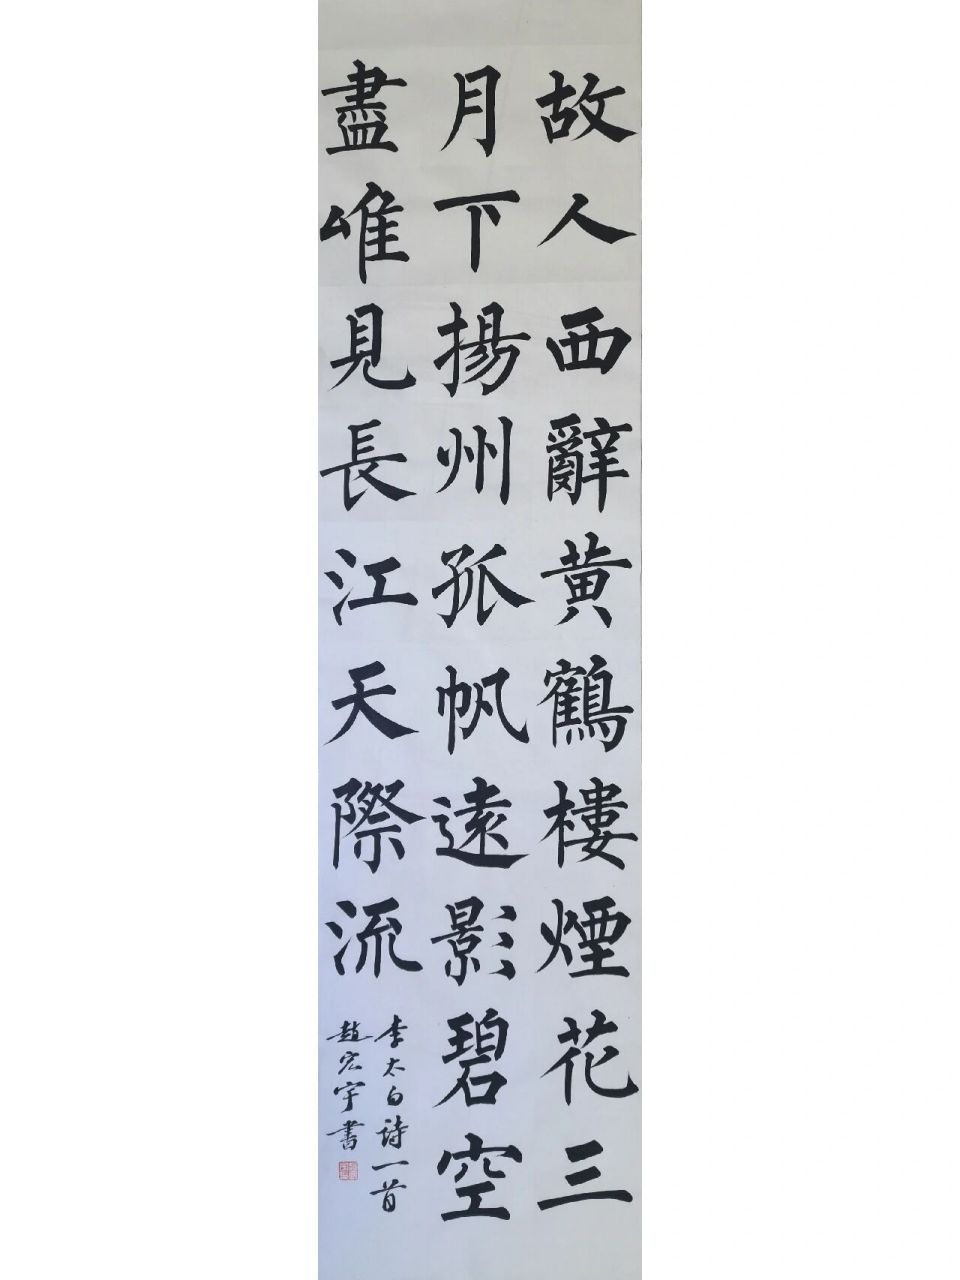 故人西辭黃鶴樓煙花三
月下揚州孤帆遠影碧空
盡唯見長江天際流
李太白詩一首
趙宏宇書